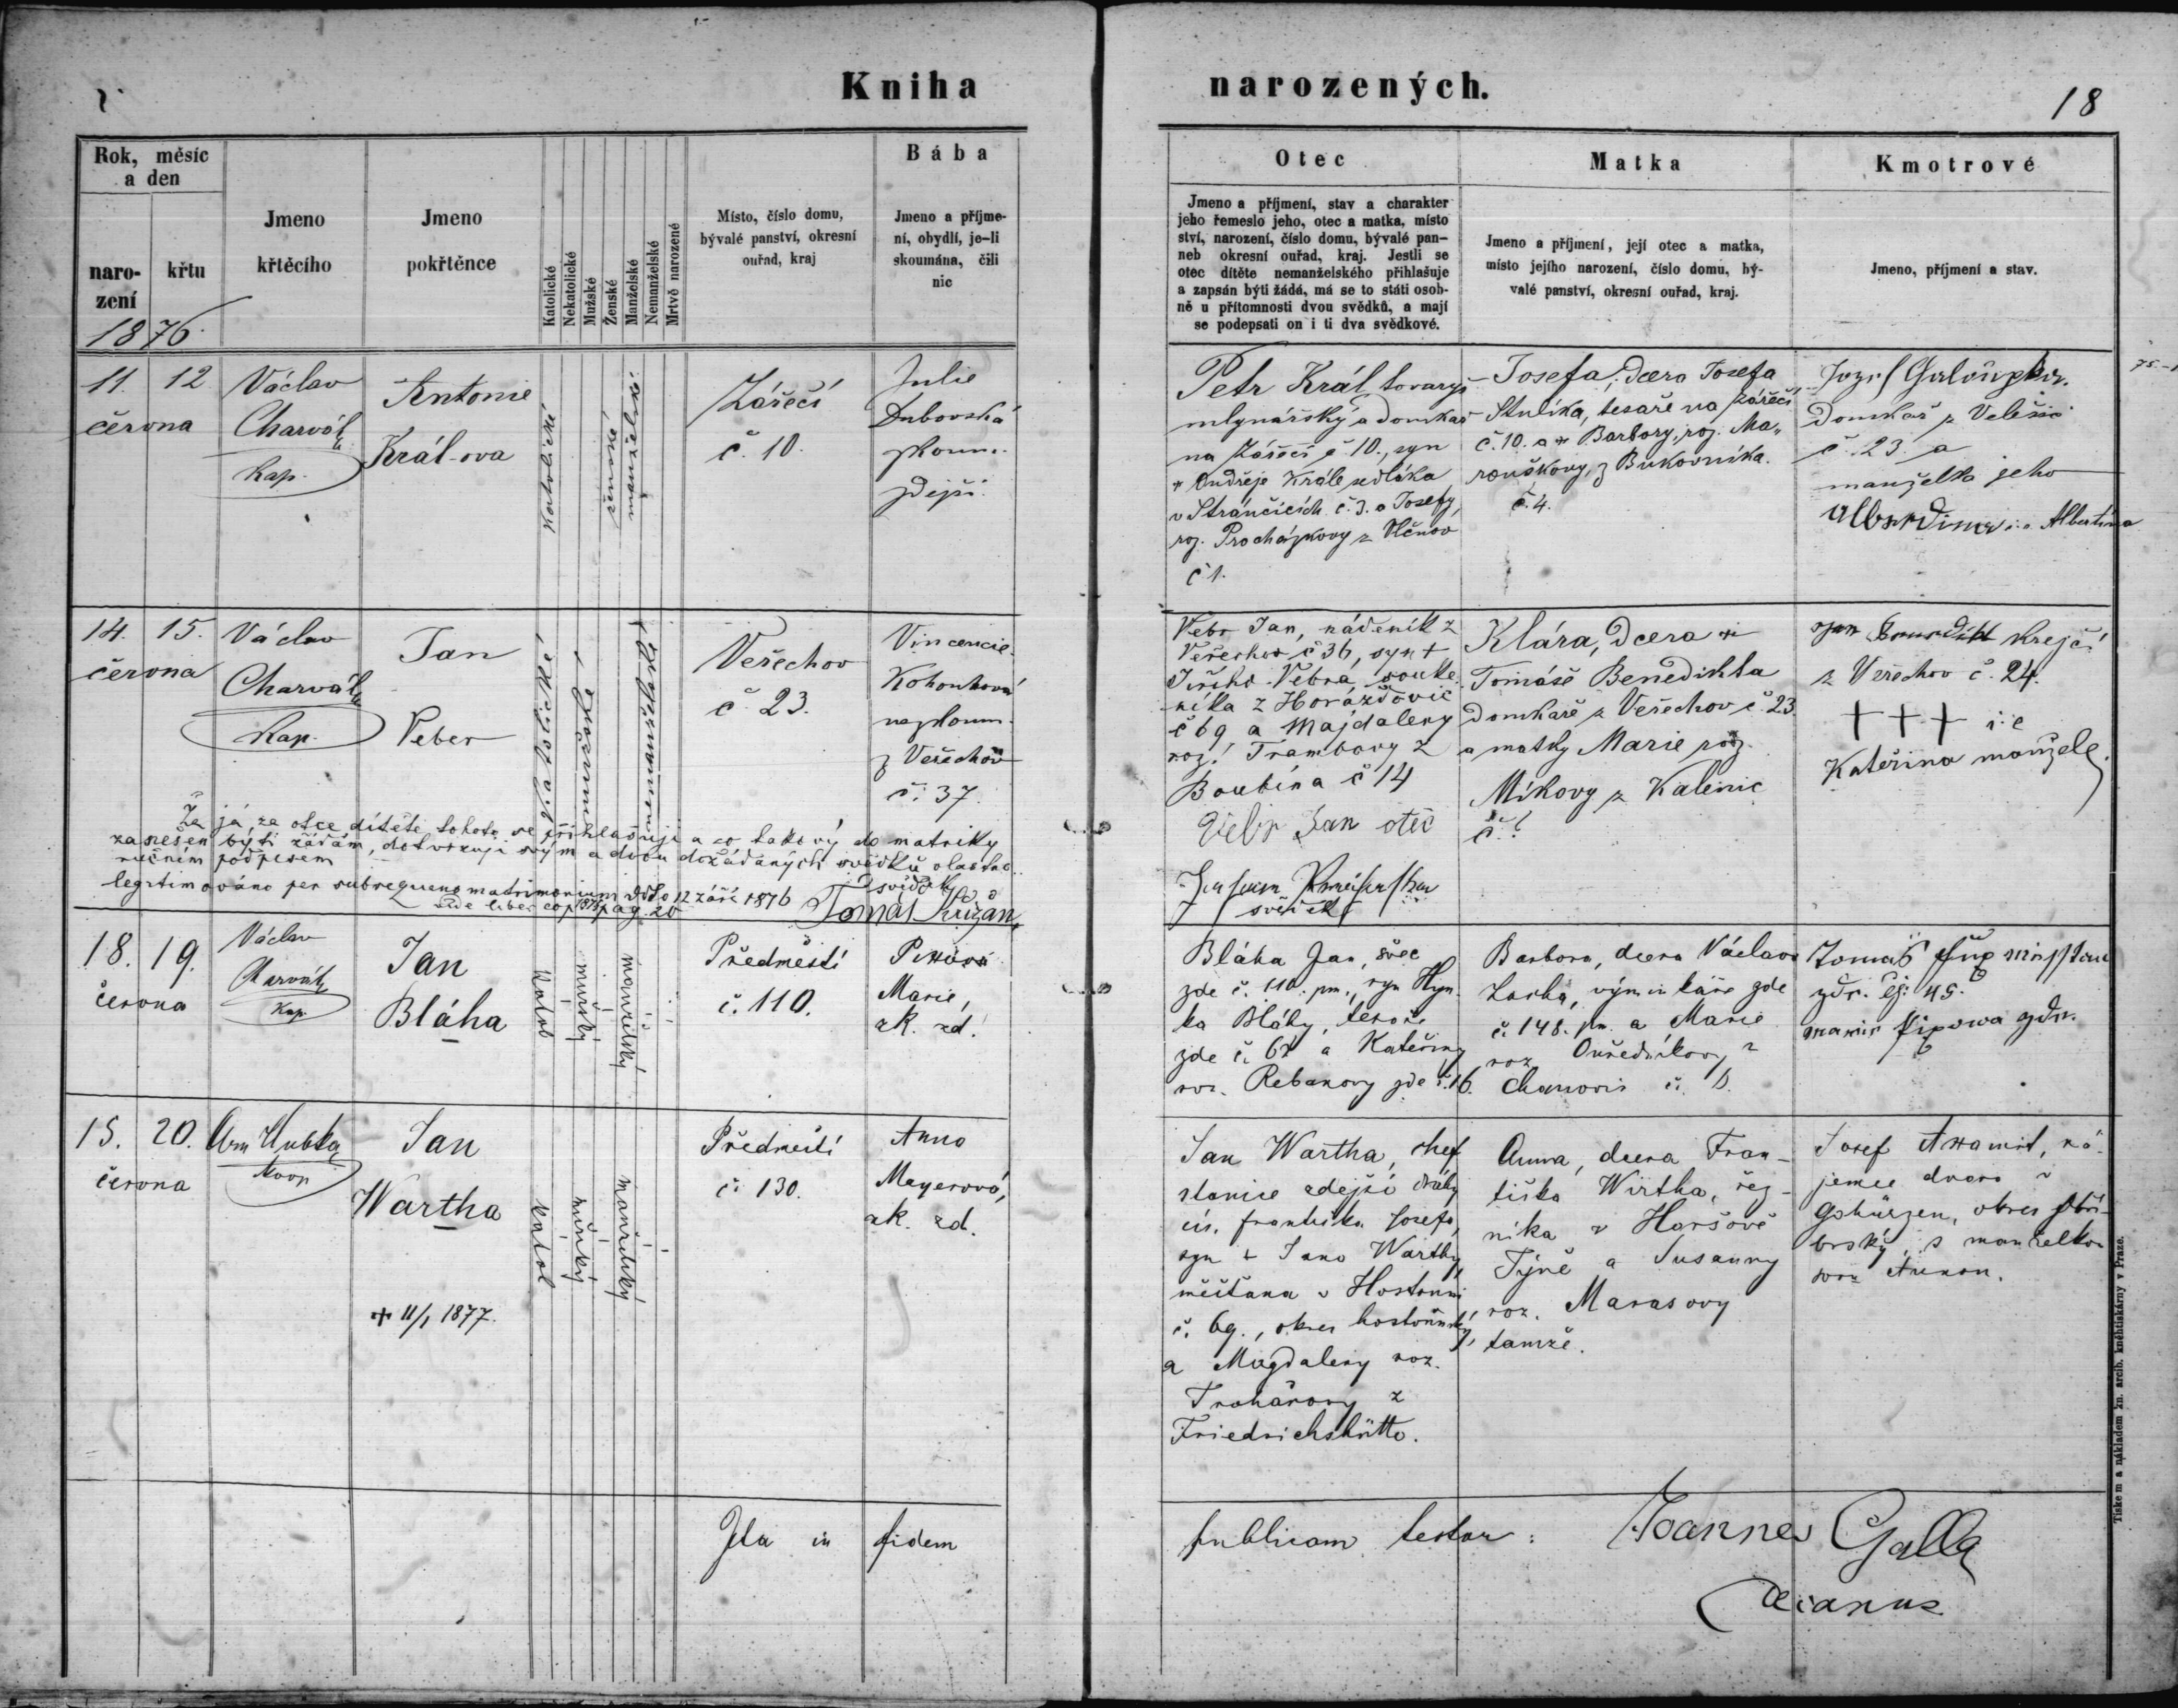 Kniha narozených.
18
Rok, měsíc
a den
naro-
zení
křtu
1876
Jmeno
křtěcího
Jmeno
pokřtěnce
Katolické
Nekatolické
Mužské
Ženské
Manželské
Nemanželské
Mrtvě narozené
Místo, číslo domu,
bývalé panství, okresní
ouřad, kraj
Bába
Jmeno a příjme-
ní, obydlí, je-li
skoumána, čili
nic
Otec
Jmeno a příjmení, stav a charakter
jeho řemeslo jeho, otec a matka, místo
ství, narození, číslo domu, bývalé pan-
neb okresní ouřad, kraj. Jestli se
otec dítěte nemanželského přihlašuje
a zapsán býti žádá, má se to státi osob-
ně u přítomnosti dvou svědků, a mají
se podepsati on i ti dva svědkové.
Matka
Jmeno a příjmení, její otec a matka,
místo jejího narození, číslo domu, bý-
valé panství, okresní ouřad, kraj.
Kmotrové
Jmeno, příjmení a stav.
11. 12
června
Václav
Charvát
Kap.
Antonie
Král-ova
Katolické
ženské
manželské
Zářečí
č. 10.
Julie
Dubovská
zkoum.
zdejší
Petr Král, tovaryš
mlynářský a domkař
na Zářečí č 10., syn
+ Ondřeje Krále sedláka
v Strančicích č. 3. a Josefy,
roz. Procházkovy z Vlčnov
č 1.
Josefa, dcera Josefa
Stulíka, tesaře na Zářečí
č. 10. a + Barbory, roz. Ma„
rouškovy, z Bukovníka.
č. 4.
Domkař z Velešic
č. 23. a
manželka jeho
Albertina i.e Albertina
14. 15.
června
Václav
Charvát
Kap.
Jan
Veber
Katolické
mužské
nemanželské
Veřechov
č. 23.
Vincencie
Kohoutková
nezkoum.
z Veřechov
č. 37.
Vebr Jan, nádeník z
Veřechov č 36, syn +
Jiřího Vebra, souke-
níka z Horažďovic
č 69 a Majdaleny
roz. Trambovy z
Boubína č 14
Vebr Jan otec
svědek
Klára, dcera +
Tomáše Benedikta
domkaře z Veřechov č. 23.
a matky Marie roz.
Míkovy z Kalenic
č. ?
Jan Benedikt krejčí
z Veřechov č. 24.
+ + + i.e
Kateřina manžele
Že já za otce dítěte tohoto se přihlašuji a co takový do matriky
zanešen býti žádám, dotvrzuji svým a dvou dožádaných svědků vlastno-
ručním podpisem
legitimováno per subsequens matrimonium ddto 12 září 1876
vide liber cop. 1876 pag. 20
svědek
Tomáš Křižan
18. 19.
června
Václav
Charvát
Kap.
Jan
Bláha
Katol
mužský
manželský
Předměstí
č. 110.
Marie,
zk. zd.
Bláha Jan, švec
zde č. 110. pm., syn Hyn-
ka Bláhy, tesaře
zde č. 67 a Kateřiny
roz. Rebanovy zde č. 16.
Barbora, dcera Václava
Zacha, výminkáře zde
č. 148. pm. a Marie
roz. Ouředníkovy z
Chanovic č.
Tomáš
15. 20.
června
Koop
Jan
Wartha
+ 11/1 1877.
Katol
mužský
manželský
Předměstí
č. 130.
Anna
Mayerová,
zk. zd.
Jan Wartha, chef
stanice zdejší dráhy
cís. Františka Josefa,
syn + Jana Warthy,
měšťana v Hostouni
č. 69., okres hostouňský,
a Magdaleny roz.
Trohárovy z
Friedrichshütte.
Anna, dcera Fran-
tiška Wirtha, řez-
níka v Horšově
Týně a Susanny
roz. Marasovy
tamže.
Josef, ná-
jemce dvora v
okres stří-
brský, s manželkou
svou Annou.
Ita in fidem publicam testor: Joannes Galla
Decanus
Tiskem a nákladem kn. arcib. knihtiskárny v Praze.